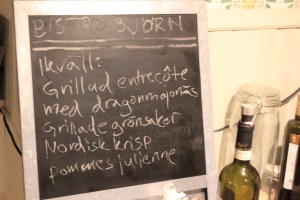 BISTRO BJÖRN
Ikväll:
Grillad entrecôte
med dragonmajonäs
Grillade grönsaker
Nordisk krisp
pommes julienne